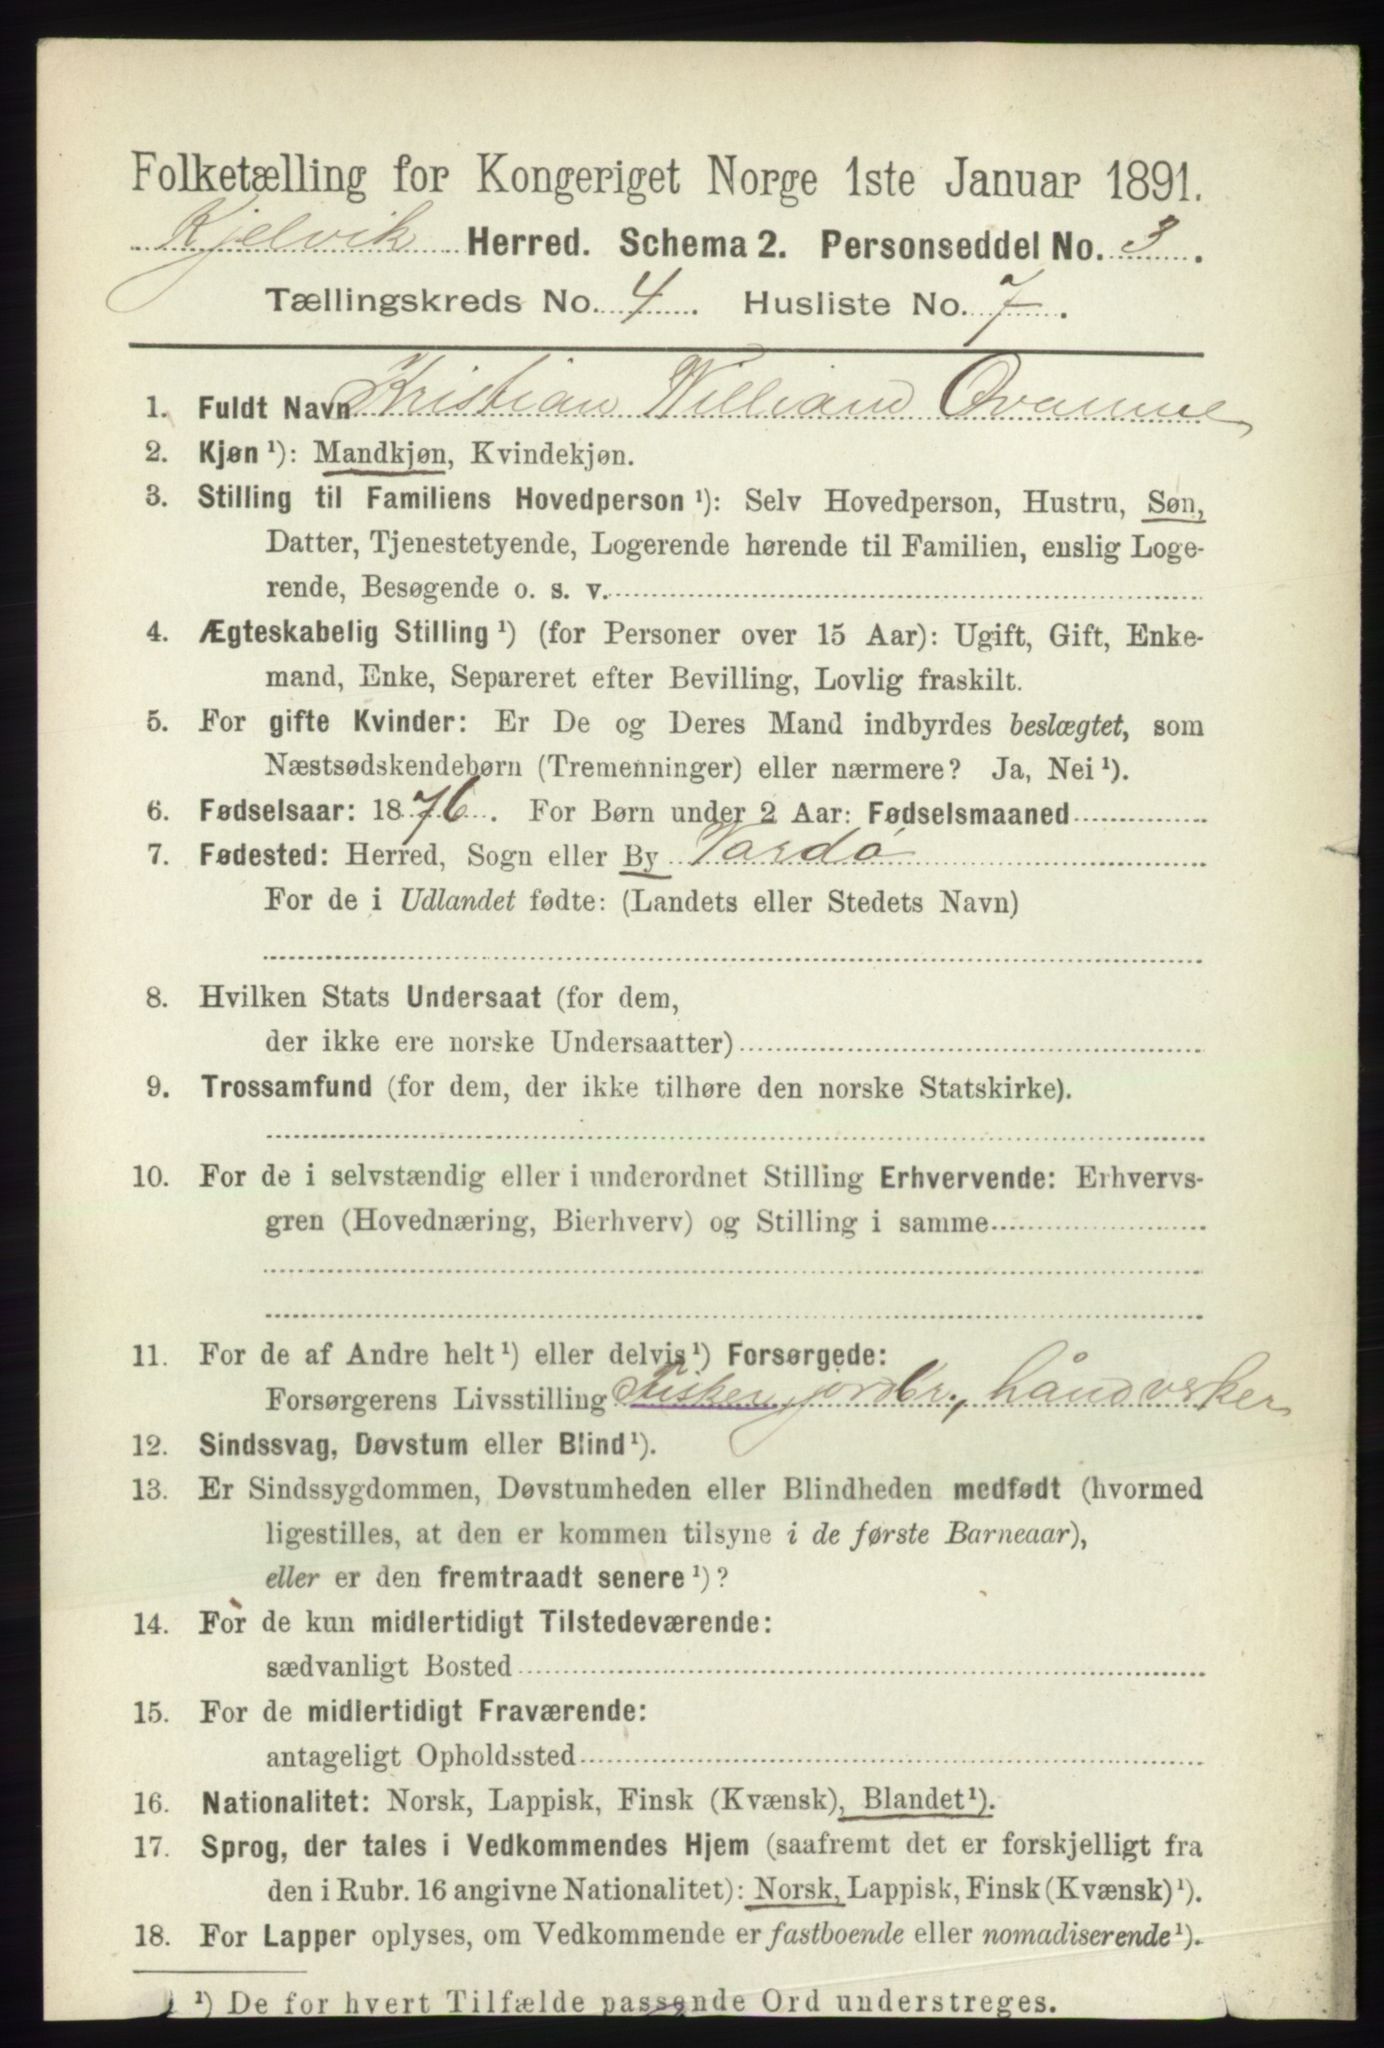 Folketælling for Kongeriget Norge 1ste Januar 1891.
Kjelvik Herred. Schema 2. Personseddel No. 3.
Tællingskreds No. 4. Husliste No. 7.
1. Fuldt Navn Kristian William
2. Kjøn ¹): Mandkjøn, Kvindekjøn.
3. Stilling til Familiens Hovedperson ¹): Selv Hovedperson, Hustru, Søn,
Datter, Tjenestetyende, Logerende hørende til Familien, enslig Loge-
rende, Besøgende o. s. v.
4. Ægteskabelig Stilling ¹) (for Personer over 15 Aar): Ugift, Gift, Enke-
mand, Enke, Separeret efter Bevilling, Lovlig fraskilt.
5. For gifte Kvinder: Er De og Deres Mand indbyrdes beslægtet, som
Næstsødskendebørn (Tremenninger) eller nærmere? Ja, Nei ¹).
6. Fødselsaar: 1876. For Børn under 2 Aar: Fødselsmaaned
7. Fødested: Herred, Sogn eller By Vardø
For de i Udlandet fødte: (Landets eller Stedets Navn)
8. Hvilken Stats Undersaat (for dem,
der ikke ere norske Undersaatter)
9. Trossamfund (for dem, der ikke tilhøre den norske Statskirke).
10. For de i selvstændig eller i underordnet Stilling Erhvervende: Erhvervs-
gren (Hovednæring, Bierhverv) og Stilling i samme
11. For de af Andre helt ¹) eller delvis ¹) Forsørgede:
Forsørgerens Livsstilling Fisker, jordbr., håndverker
12. Sindssvag, Døvstum eller Blind ¹).
13. Er Sindssygdommen, Døvstumheden eller Blindheden medfødt (hvormed
ligestilles, at den er kommen tilsyne i de første Barneaar),
eller er den fremtraadt senere ¹)?
14. For de kun midlertidigt Tilstedeværende:
sædvanligt Bosted
15. For de midlertidigt Fraværende:
antageligt Opholdssted
16. Nationalitet: Norsk, Lappisk, Finsk (Kvænsk), Blandet ¹).
17. Sprog, der tales i Vedkommendes Hjem (saafremt det er forskjelligt fra
den i Rubr. 16 angivne Nationalitet): Norsk, Lappisk, Finsk (Kvænsk) ¹).
18. For Lapper oplyses, om Vedkommende er fastboende eller nomadiserende ¹).
¹) De for hvert Tilfælde passende Ord understreges.